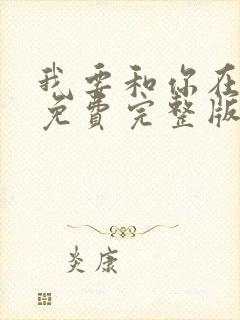 我要和你在
免费完整版
炎康